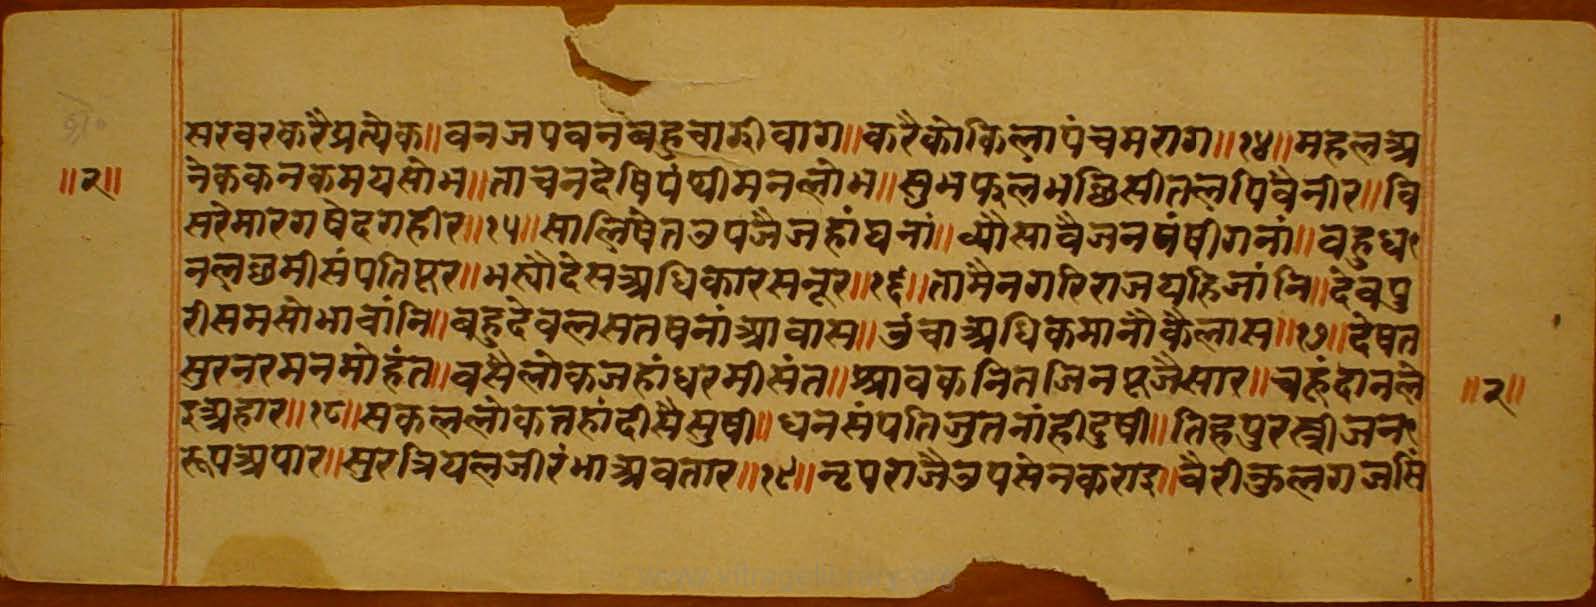 सरवरकरैंप्रत्येक॥वनजपवनबहुचाडीवाग॥करैकोकिलापंचमराग॥१४॥महलअ
॥२॥ नेककनकमयसोभ॥ताचनदेषिपंथीमनलोभ॥सुभफुलभछिसीतलपिवैनीर॥वि
सरेमारगषेदगहीर॥१५॥सालिषेतउपजैजहांघनां॥व्यौसावैजनपंषीगनां॥वहुध
नलछमीसंपतिपूर॥भस्यौदेसअधिकारसनूर॥१६॥तामैनगरिराजग्रहिजांनि॥देवपु
रीसमसोभावांनि॥बहुदेवलसतषनांआवास॥उंचाअधिकमानौंकैलास॥१७॥देषत
सुरनरमनमोहंत॥वसैलोकजहांधरमीसंत॥श्रावकनितजिनपूजैसार॥चहूंदानले ॥२॥
इअहार॥१८॥सकललोकतहांदीसैसुषी॥धनसंपतिजुतनांहीदुषी॥तिहपुरस्त्रीजन
रूपअपार॥सुरत्रियलजीरंभाअवतार॥१९॥नृपराजैउपसेनकराइ॥वैरीकुलगजसिं
www.vitragelibrary.org